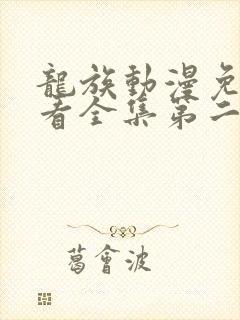 龍族動漫免
看全集第二
葛會波